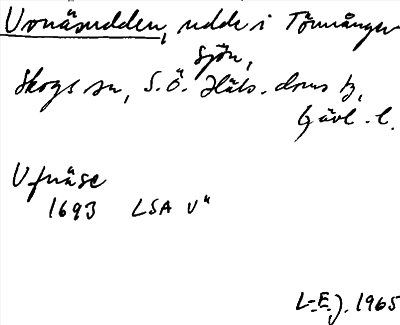 Uvnäsudden, udde i Tönnånger
sjön,
Skogs sn, S.Ö. Häls. doms h,
Gävl. l.
Ufnäse
1693 LSA U"
L-E.J. 1965